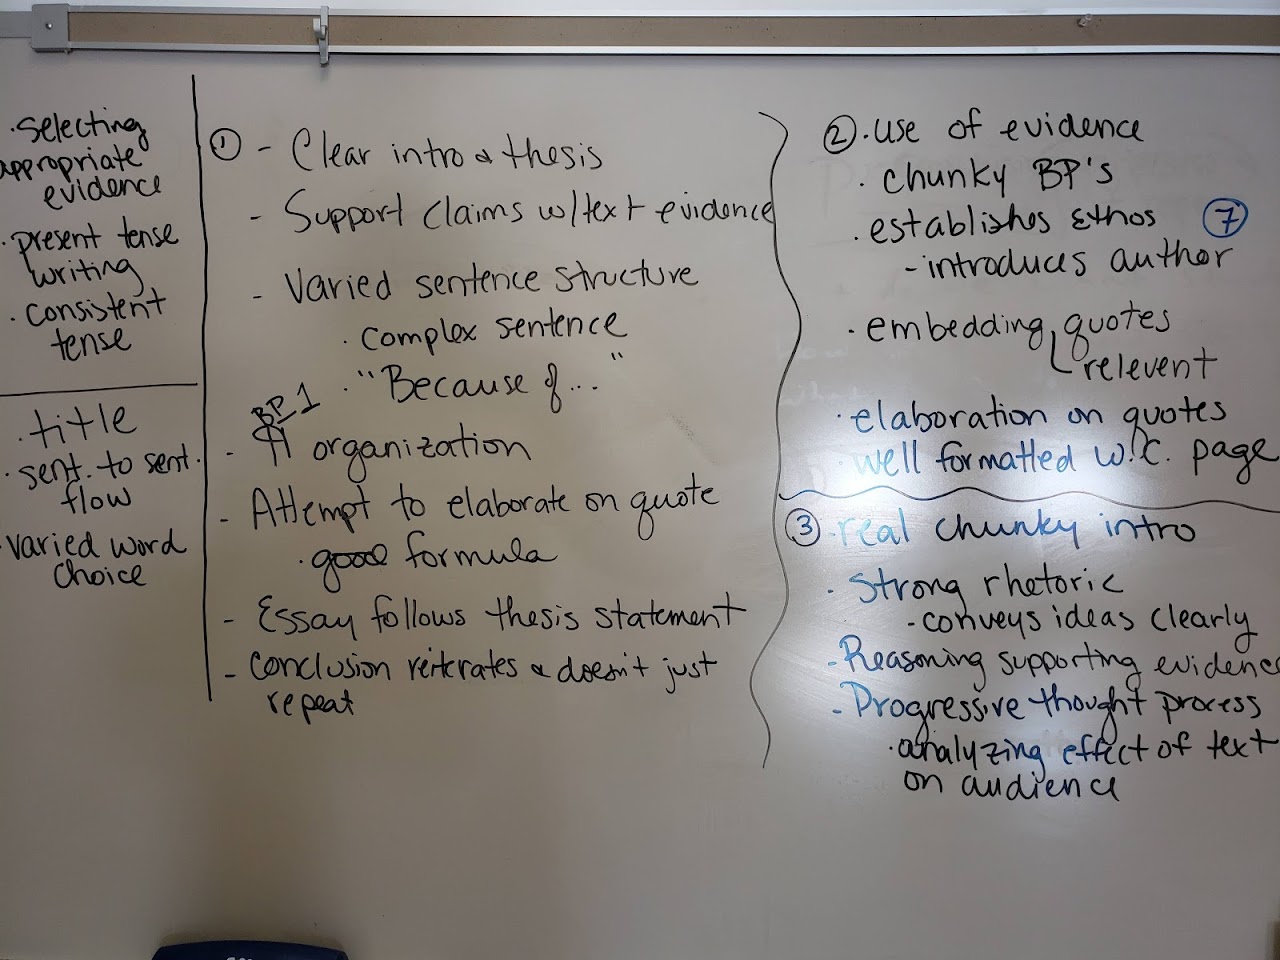 · selecting
appropriate
evidence
· present tense
writing
· consistent
tense
· title
· sent. to sent.
flow
· varied word
choice
① - Clear intro & thesis
- Support claims w/text evidence
- Varied sentence structure
· complex sentence
· "Because of..."
BP 1
- ¶ organization
- Attempt to elaborate on quote
· good formula
- Essay follows thesis statement
- conclusion reiterates & doesn't just
repeat
② · use of evidence
· chunky BP's
· establishes Ethos ⑦
- introduces author
· embedding quotes
relevent
· elaboration on quotes
· well formatted W.C. page
③ · real chunky intro
· Strong rhetoric
- conveys ideas clearly
- Reasoning supporting evidence
- Progressive thought process
· analyzing effect of text
on audience